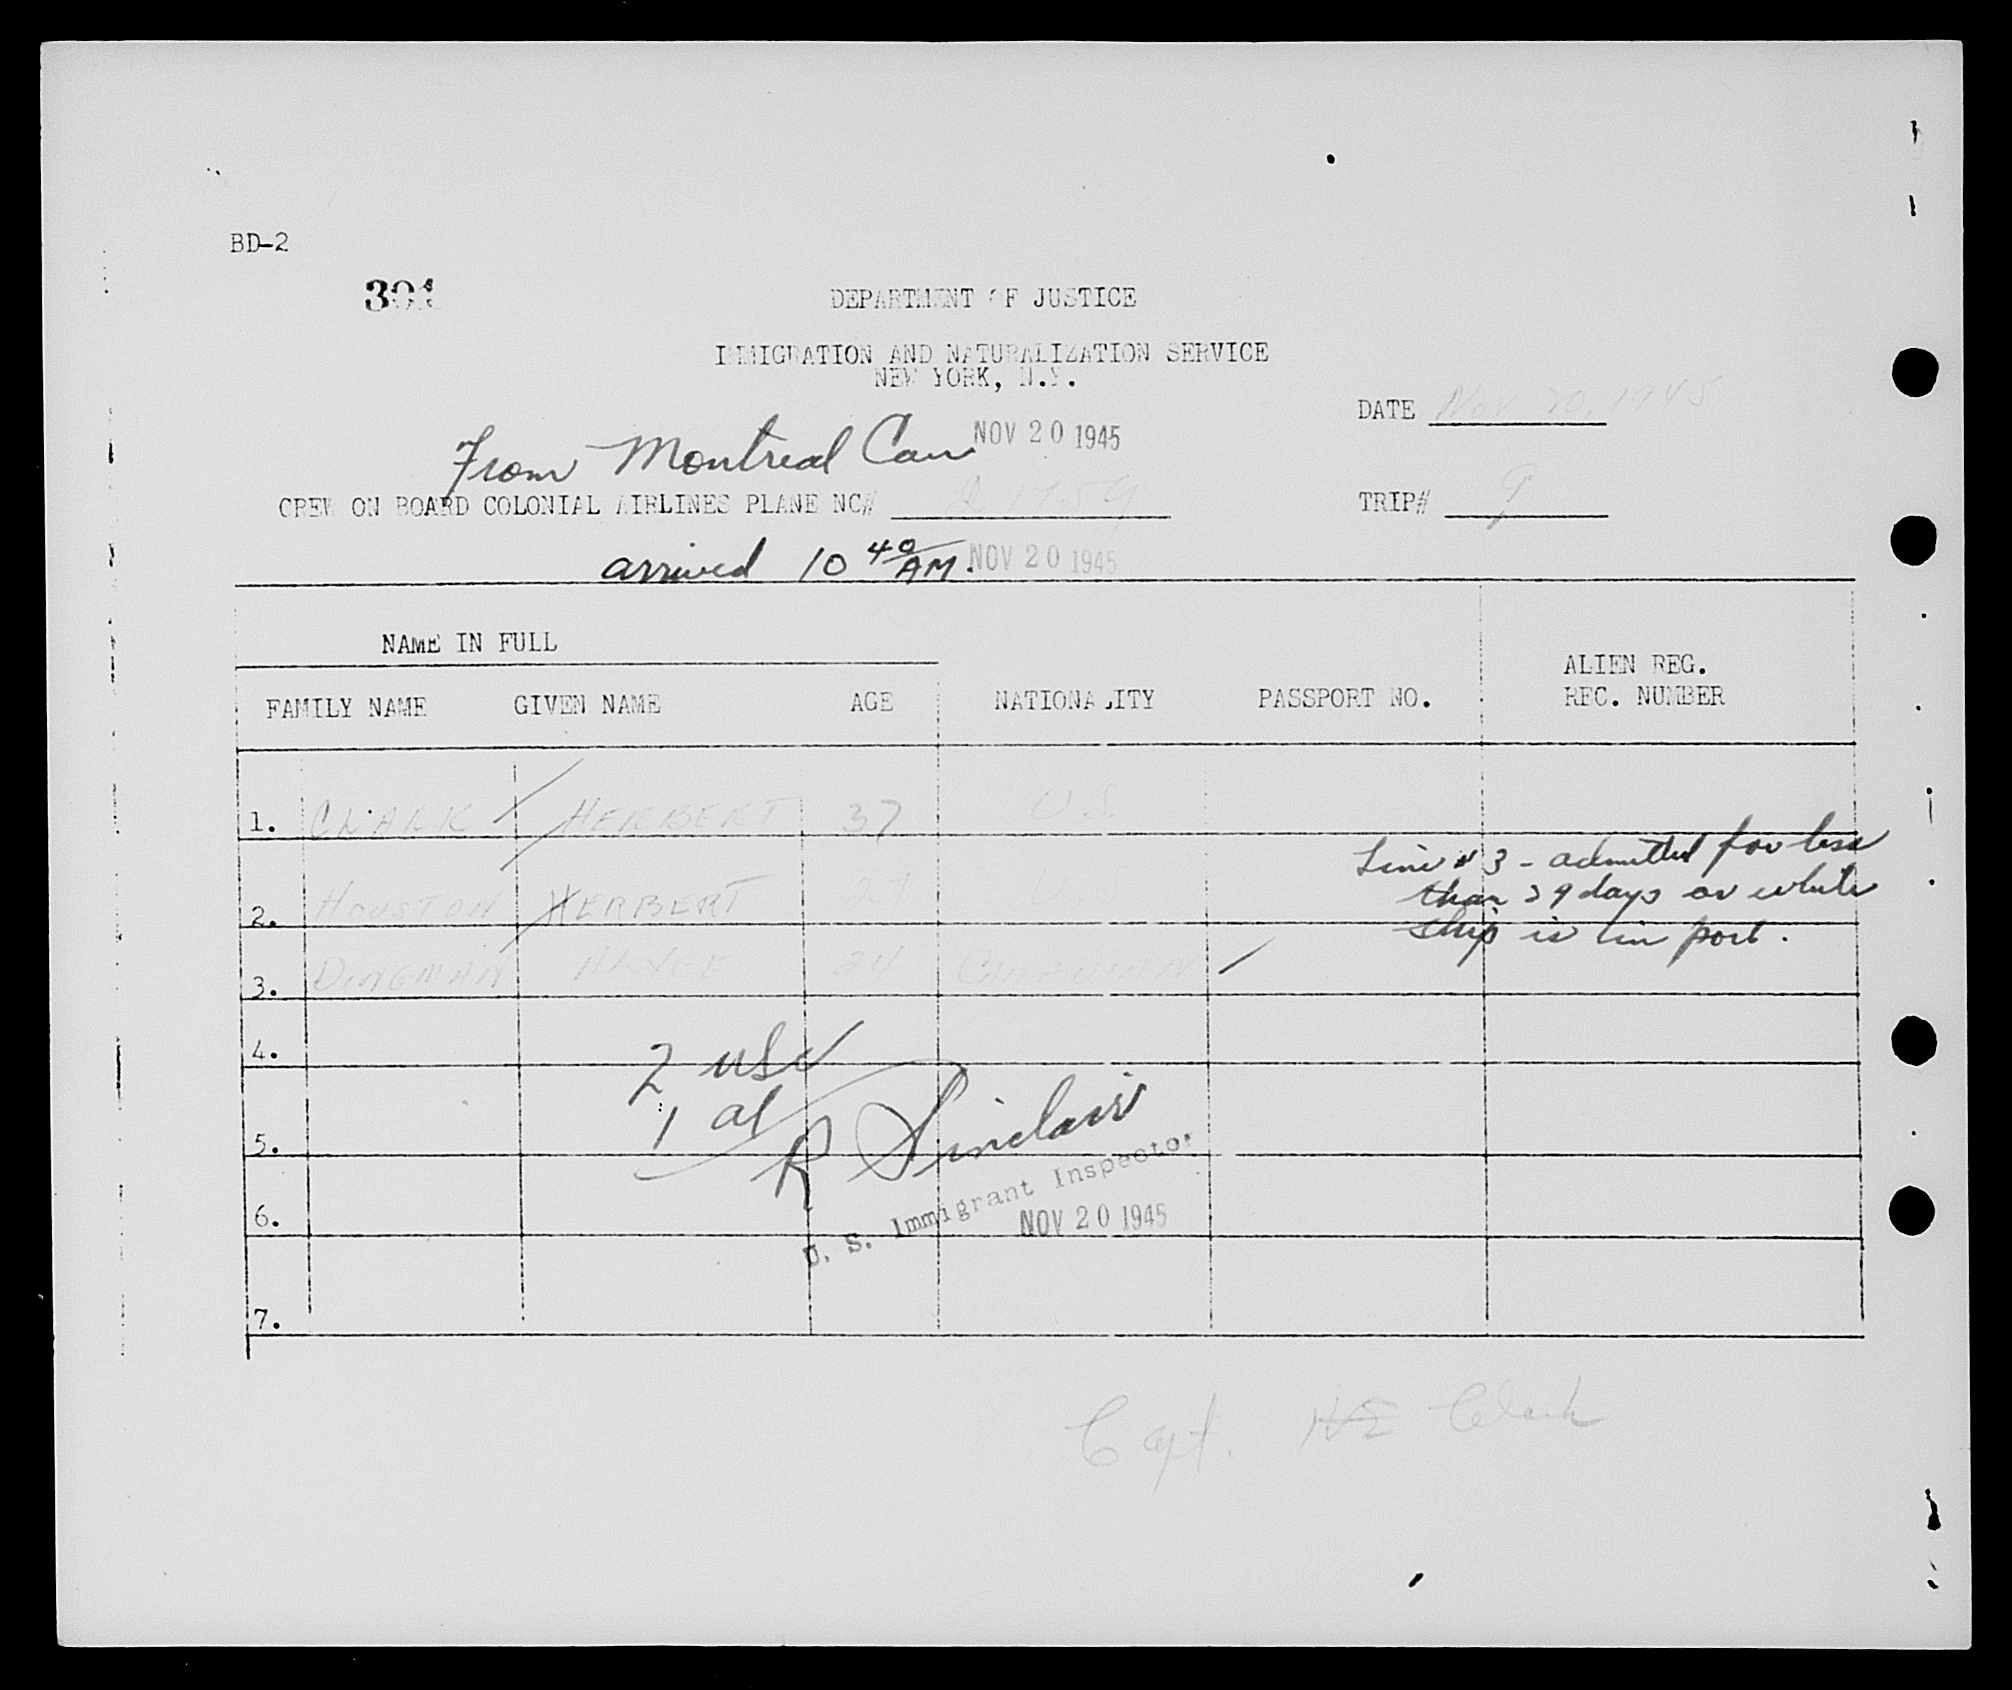 BD-2
391
DEPARTMENT OF JUSTICE
IMMIGRATION AND NATURALIZATION SERVICE
NEW YORK, N.Y.
DATE Nov 20, 1945
From Montreal Can NOV 20 1945
CREW ON BOARD COLONIAL AIRLINES PLANE NC# TRIP# 9
arrived 10 40 AM. NOV 20 1945
NAME IN FULL
ALIEN REG.
FAMILY NAME GIVEN NAME AGE NATIONALITY PASSPORT NO. REC. NUMBER
1. CLARK HERBERT 37 U.S.
Line # 3 - admitted for less
than 29 days or while
ship is in port.
2. HOUSTON HERBERT 27
3. DINGMAN 24 CANADIAN
4.
2 usc
1 al
R Sinclair
5.
U. S. Immigrant Inspector
6.
NOV 20 1945
7.
Capt. HE Clark